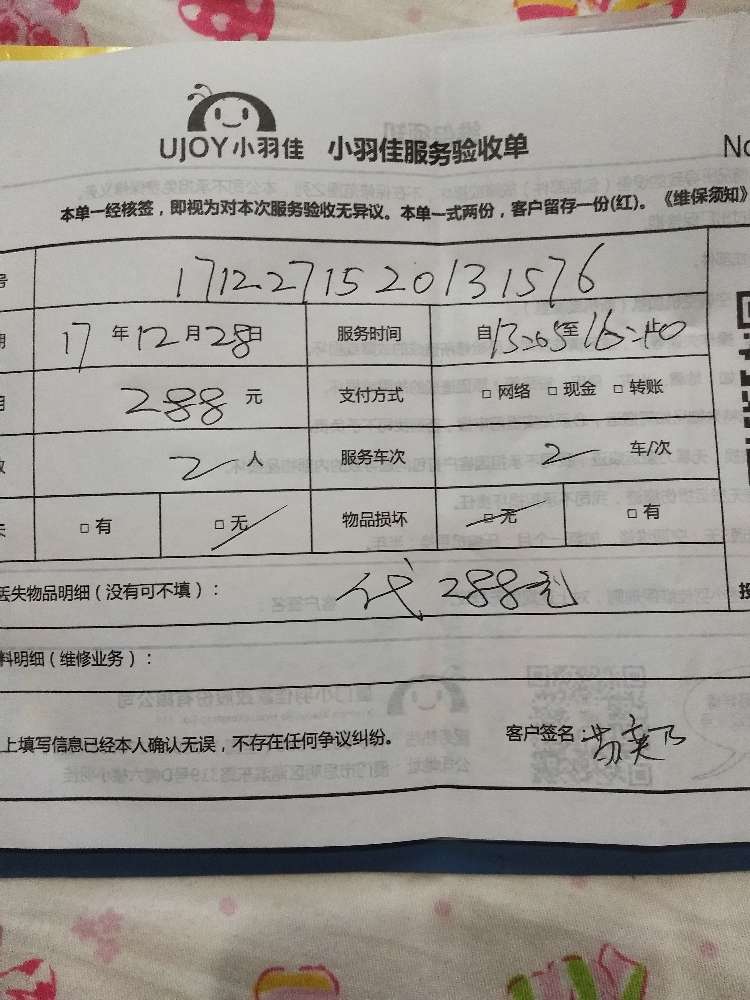 UJOY小羽佳 小羽佳服务验收单 No
本单一经核签，即视为对本次服务验收无异议。本单一式两份，客户留存一份(红)。《维保须知》
号 1712271520131576
期 17年12月28日 服务时间 自13:05至16:40止
用 288元 支付方式 □网络 □现金 □转账
数 2人 服务车次 2车/次
失 □有 □无 物品损坏 □无 □有
丢失物品明细（没有可不填）： 代 288元
料明细（维修业务）：
上填写信息已经本人确认无误，不存在任何争议纠纷。 客户签名：